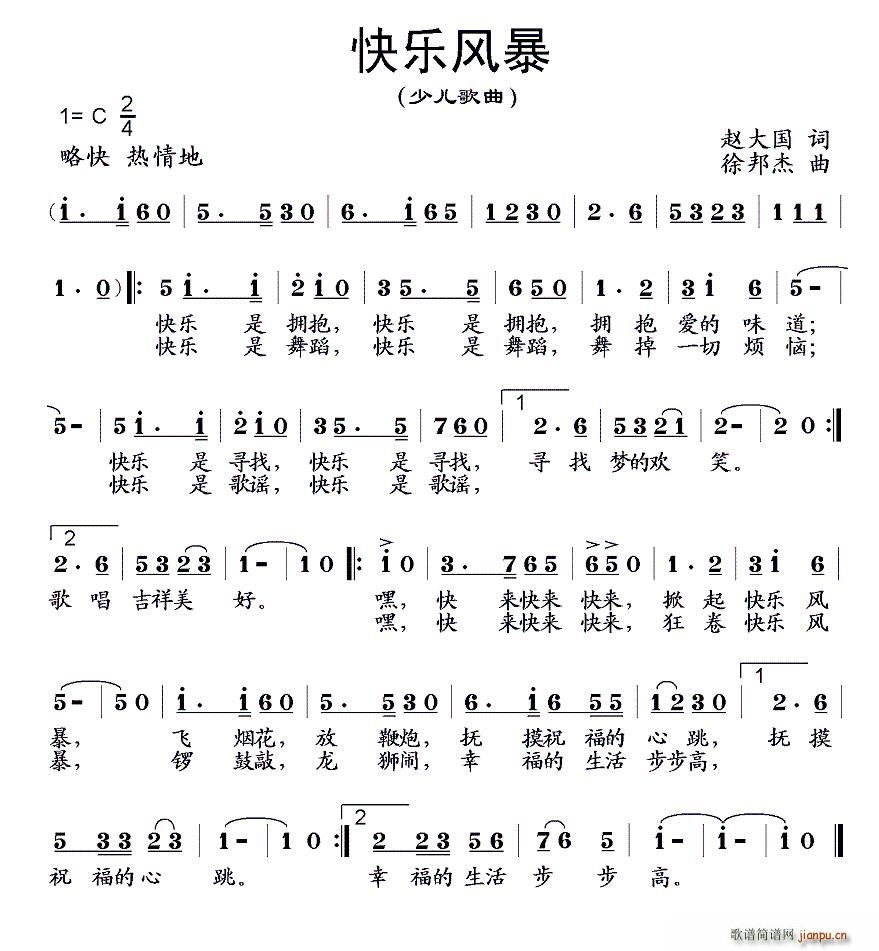 快乐风暴
(少儿歌曲)
1= C 2/4
赵大国 词
略快 热情地
徐邦杰 曲
(i· i 6 0 | 5· 5 3 0 | 6· i 6 5 | 1 2 3 0 | 2· 6 | 5 3 2 3 | 1 1 1 |
1· 0) ‖: 5 i· i | 2 i 0 | 3 5· 5 | 6 5 0 | 1· 2 | 3 i 6 | 5 - |
快乐 是 拥抱, 快乐 是 拥抱, 拥 抱 爱的 味 道;
快乐 是 舞蹈, 快乐 是 舞蹈, 舞 掉 一切 烦 恼;
5 - | 5 i· i | 2 i 0 | 3 5· 5 | 7 6 0 | 1 2· 6 | 5 3 2 1 | 2 - | 2 0 :‖
快乐 是 寻找, 快乐 是 寻找, 寻 找 梦的欢 笑。
快乐 是 歌谣, 快乐 是 歌谣,
2
2· 6 | 5 3 2 3 | 1 - | 1 0 ‖: > i 0 | 3· 7 6 5 | >> 6 5 0 | 1· 2 | 3 i 6 |
歌 唱 吉祥美 好。 嘿, 快 来快来 快来, 掀 起 快乐 风
嘿, 快 来快来 快来, 狂 卷 快乐 风
5 - | 5 0 | i· i 6 0 | 5· 5 3 0 | 6· i 6 5 5 | 1 2 3 0 | 1 2· 6 |
暴, 飞 烟花, 放 鞭炮, 抚 摸祝 福的 心 跳, 抚 摸
暴, 锣 鼓敲, 龙 狮闹, 幸 福的 生活 步步高,
5 3 3 2 3 | 1 - | 1 0 :‖ 2 2 2 3 5 6 | 7 6 5 | i - | i - | i 0 ‖
祝 福的 心 跳。 幸 福的 生活 步 步 高。
歌谱简谱网
jianpu.cn